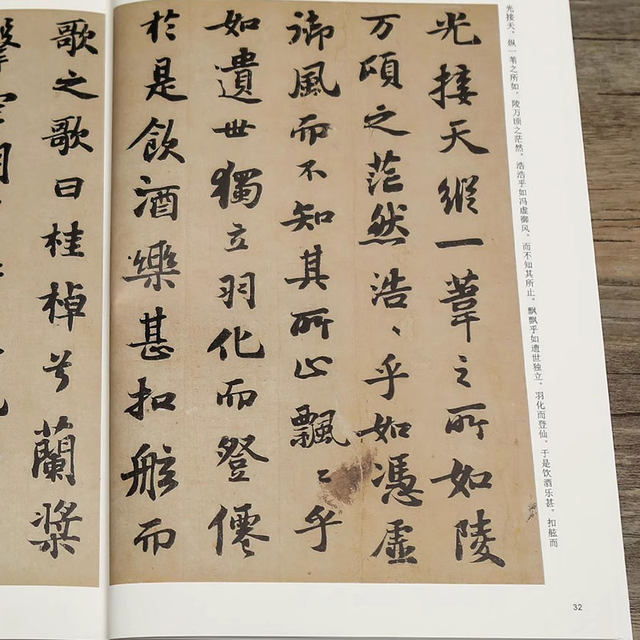 光接天。纵一苇之所如，陵万顷之茫然。浩浩乎如冯虚御风，而不知其所止。飘飘乎如遗世独立，羽化而登仙。于是饮酒乐甚，扣舷而
光接天縱一葦之所如陵
万頃之茫然浩〻乎如憑虛
御風而不知其所止飄〻乎
如遺世獨立羽化而登僊
於是飲酒樂甚扣舷而
歌之歌曰桂棹兮蘭槳
32